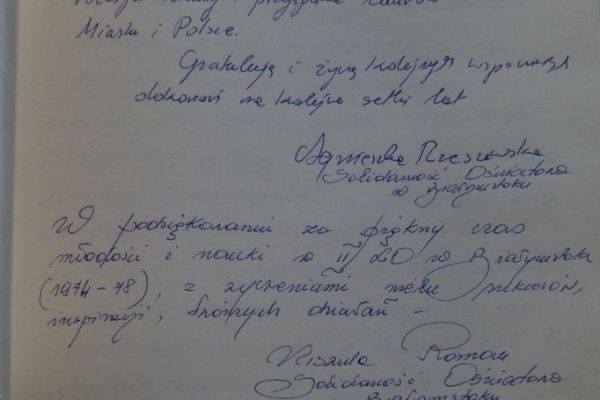 Miastu i Polsce.
Gratuluję i życzę kolejnych wspaniałych
dokonań na kolejne setki lat
Agnieszka Rzeszewska
Solidarność Oświatowa
w Białymstoku
W podziękowaniu za piękny czas
młodości i nauki w II LO w Białymstoku
(1974-78), z życzeniami wielu sukcesów,
inspiracji, twórczych działań -
Roman
Solidarność Oświatowa
w Białymstoku